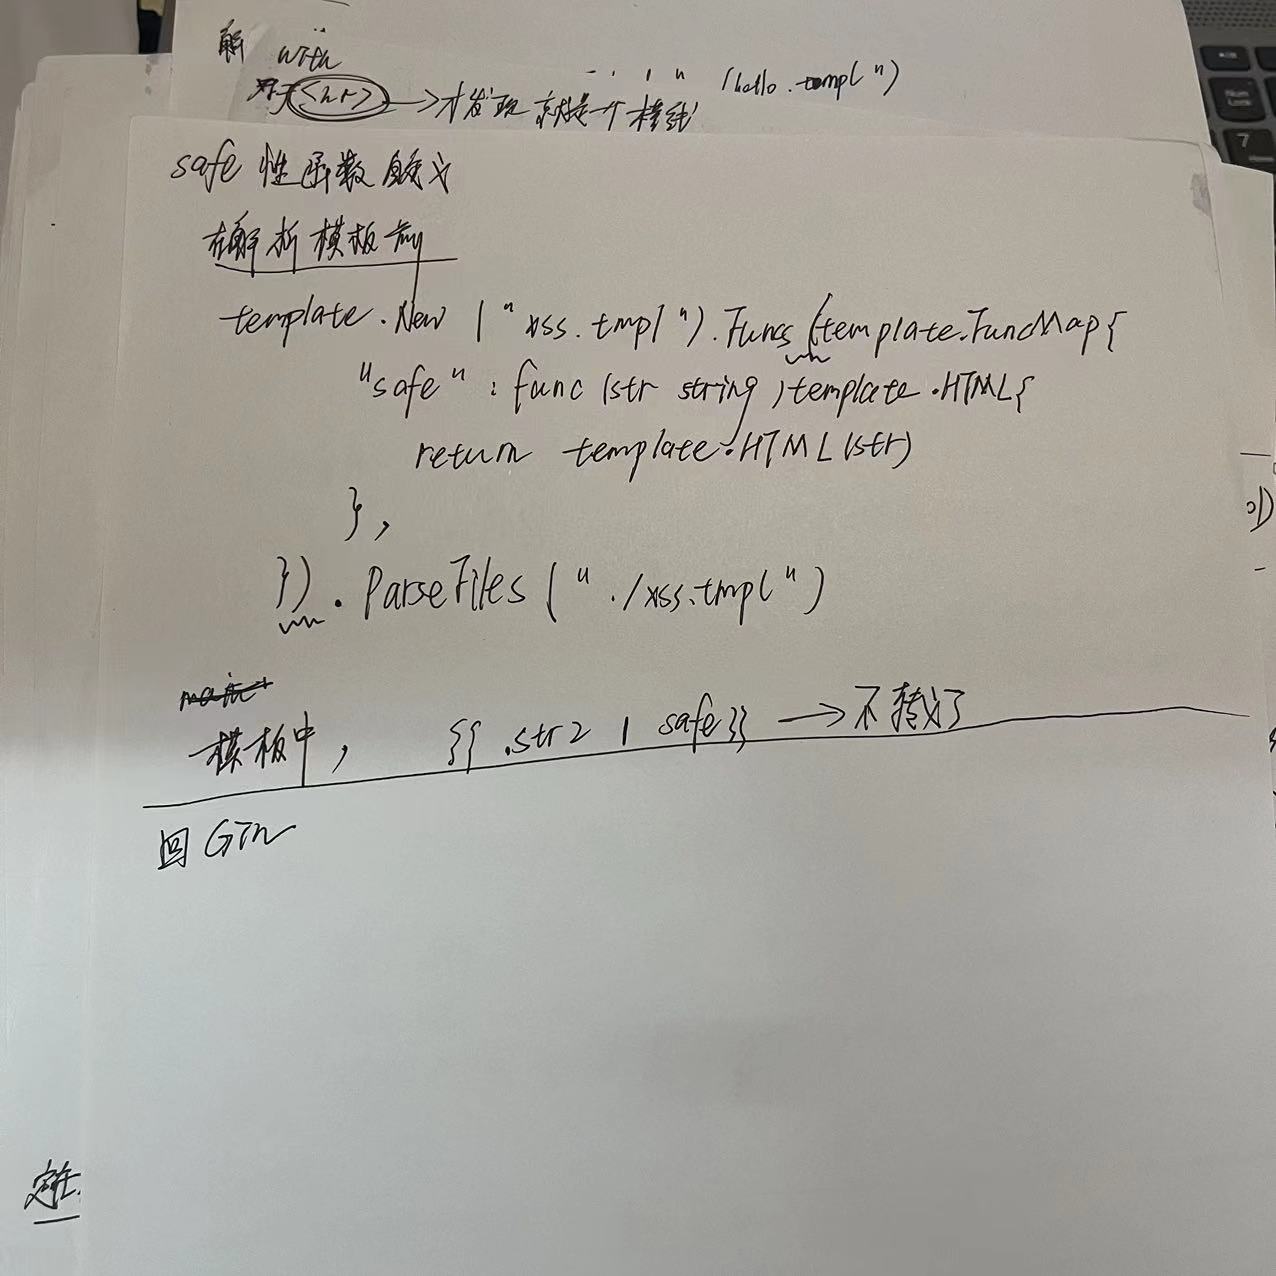 解 with
(hello.tmpl")
对于<hr> → 才发现就是一个横线
safe 性函数
在解析模板前
template.New("xss.tmpl").Funcs(template.FuncMap{
"safe": func(str string)template.HTML{
return template.HTML(str)
},
}).ParseFiles("./xss.tmpl")
模板中, {{ .str2 | safe}} → 不转义了
回 Gin
Num Lock
7